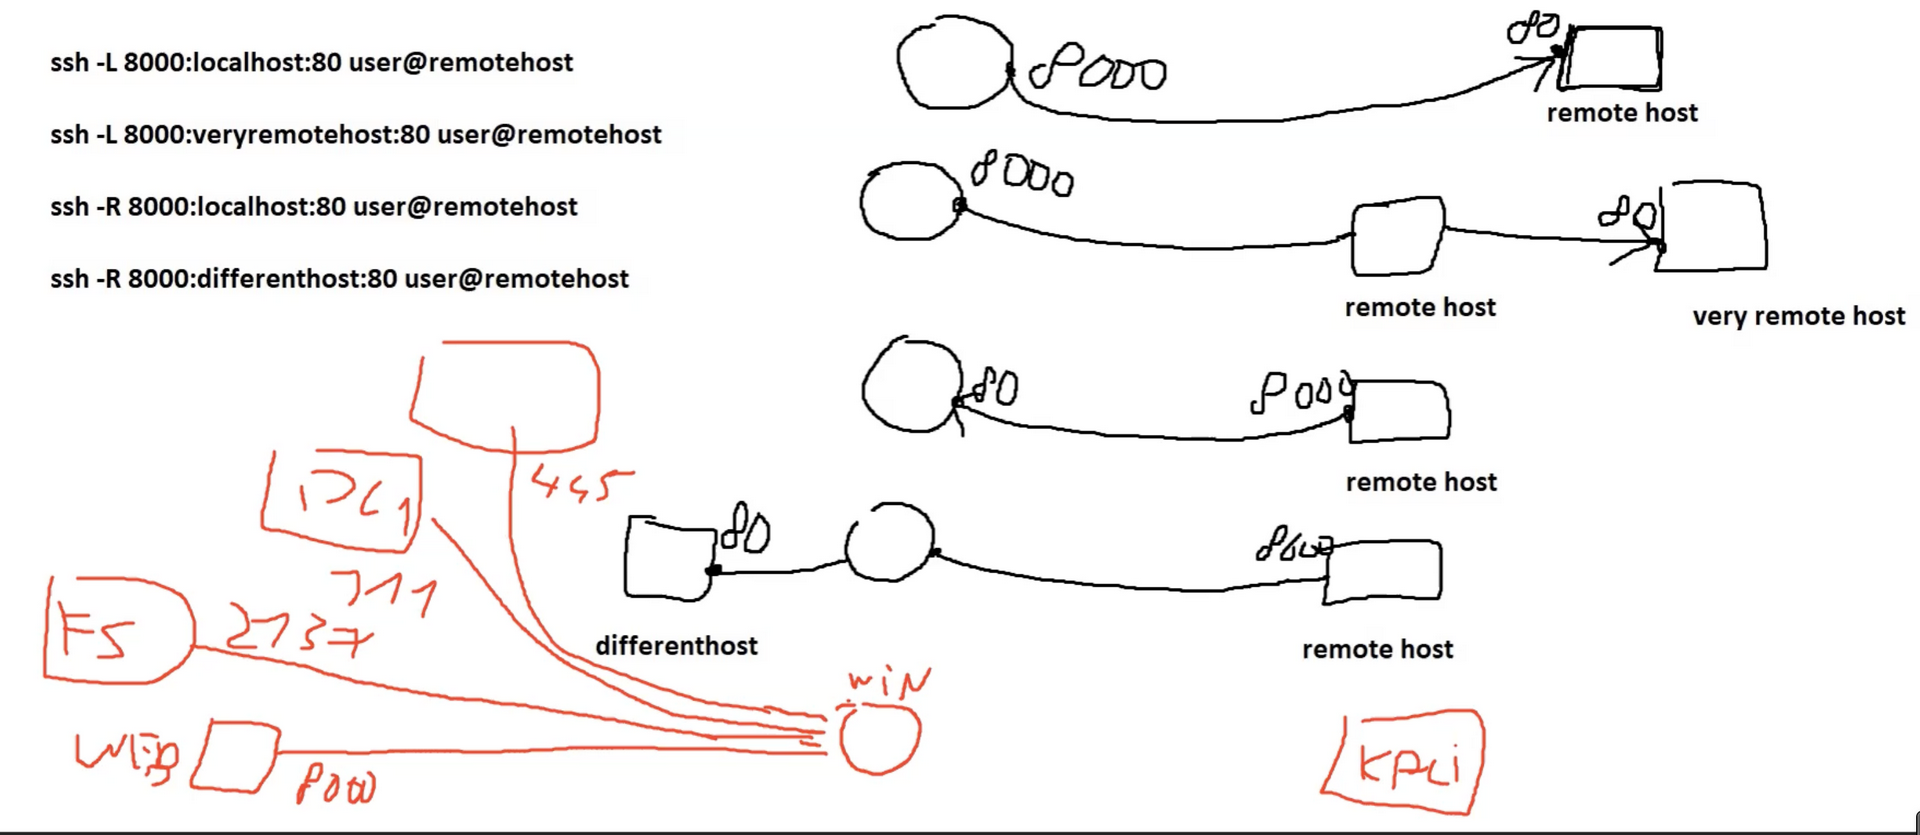 ssh -L 8000:localhost:80 user@remotehost
ssh -L 8000:veryremotehost:80 user@remotehost
ssh -R 8000:localhost:80 user@remotehost
ssh -R 8000:differenthost:80 user@remotehost
8000
80
remote host
8000
80
remote host
very remote host
80
8000
remote host
80
8000
differenthost
remote host
445
DC1
FS
2137
WEB
8000
WIN
KALI